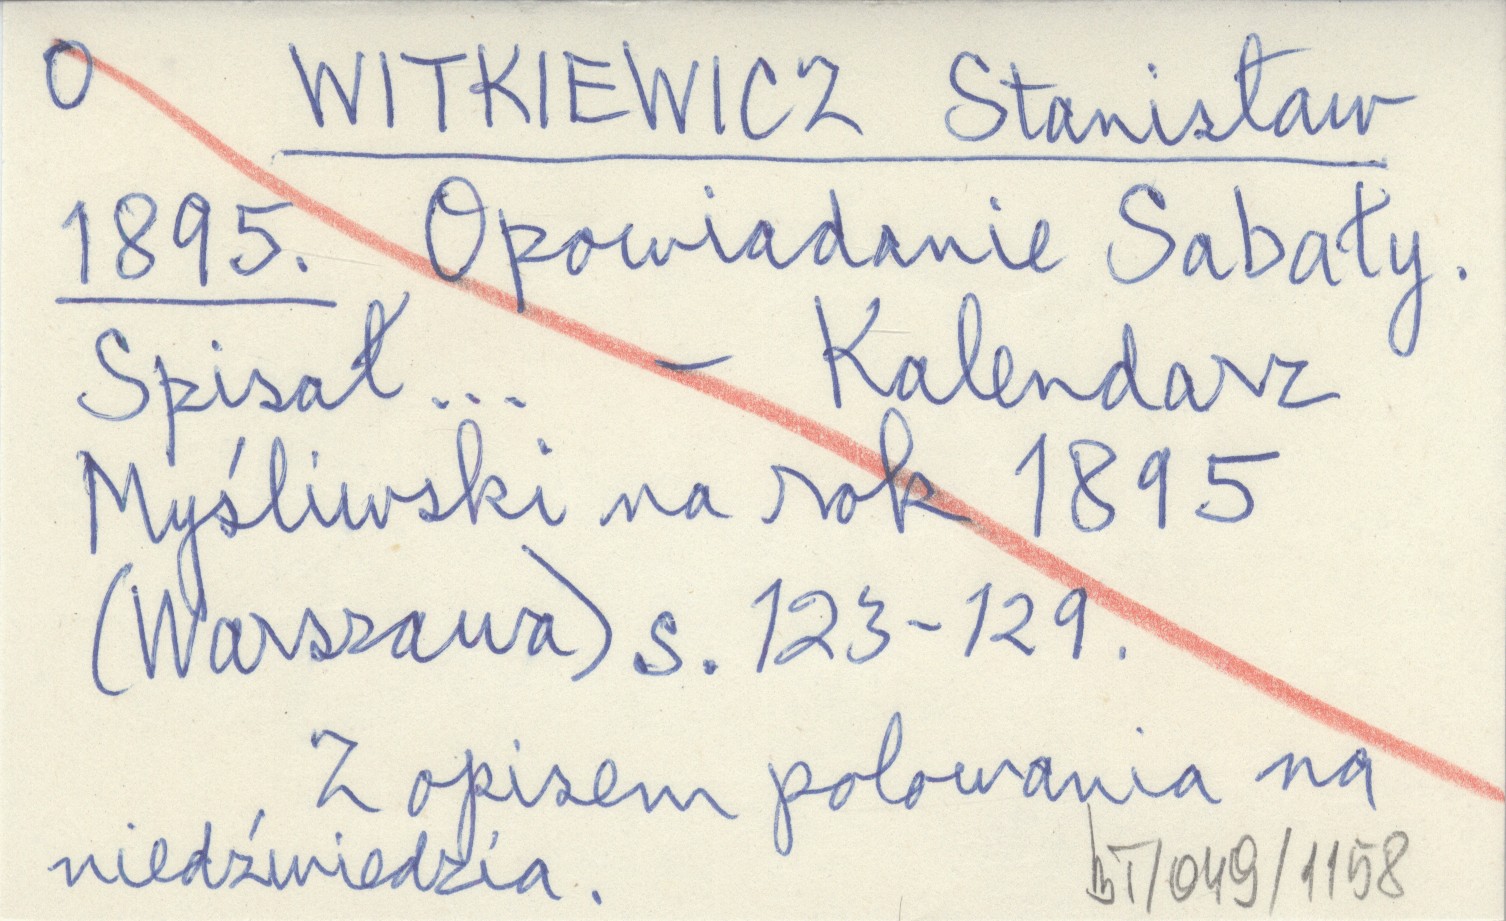 O WITKIEWICZ Stanisław
1895. Opowiadanie Sabały.
Spisał ... – Kalendarz
Myśliwski na rok 1895
(Warszawa) s. 123-129.
Z opisem polowania na
niedźwiedzia.
BT/049/1158